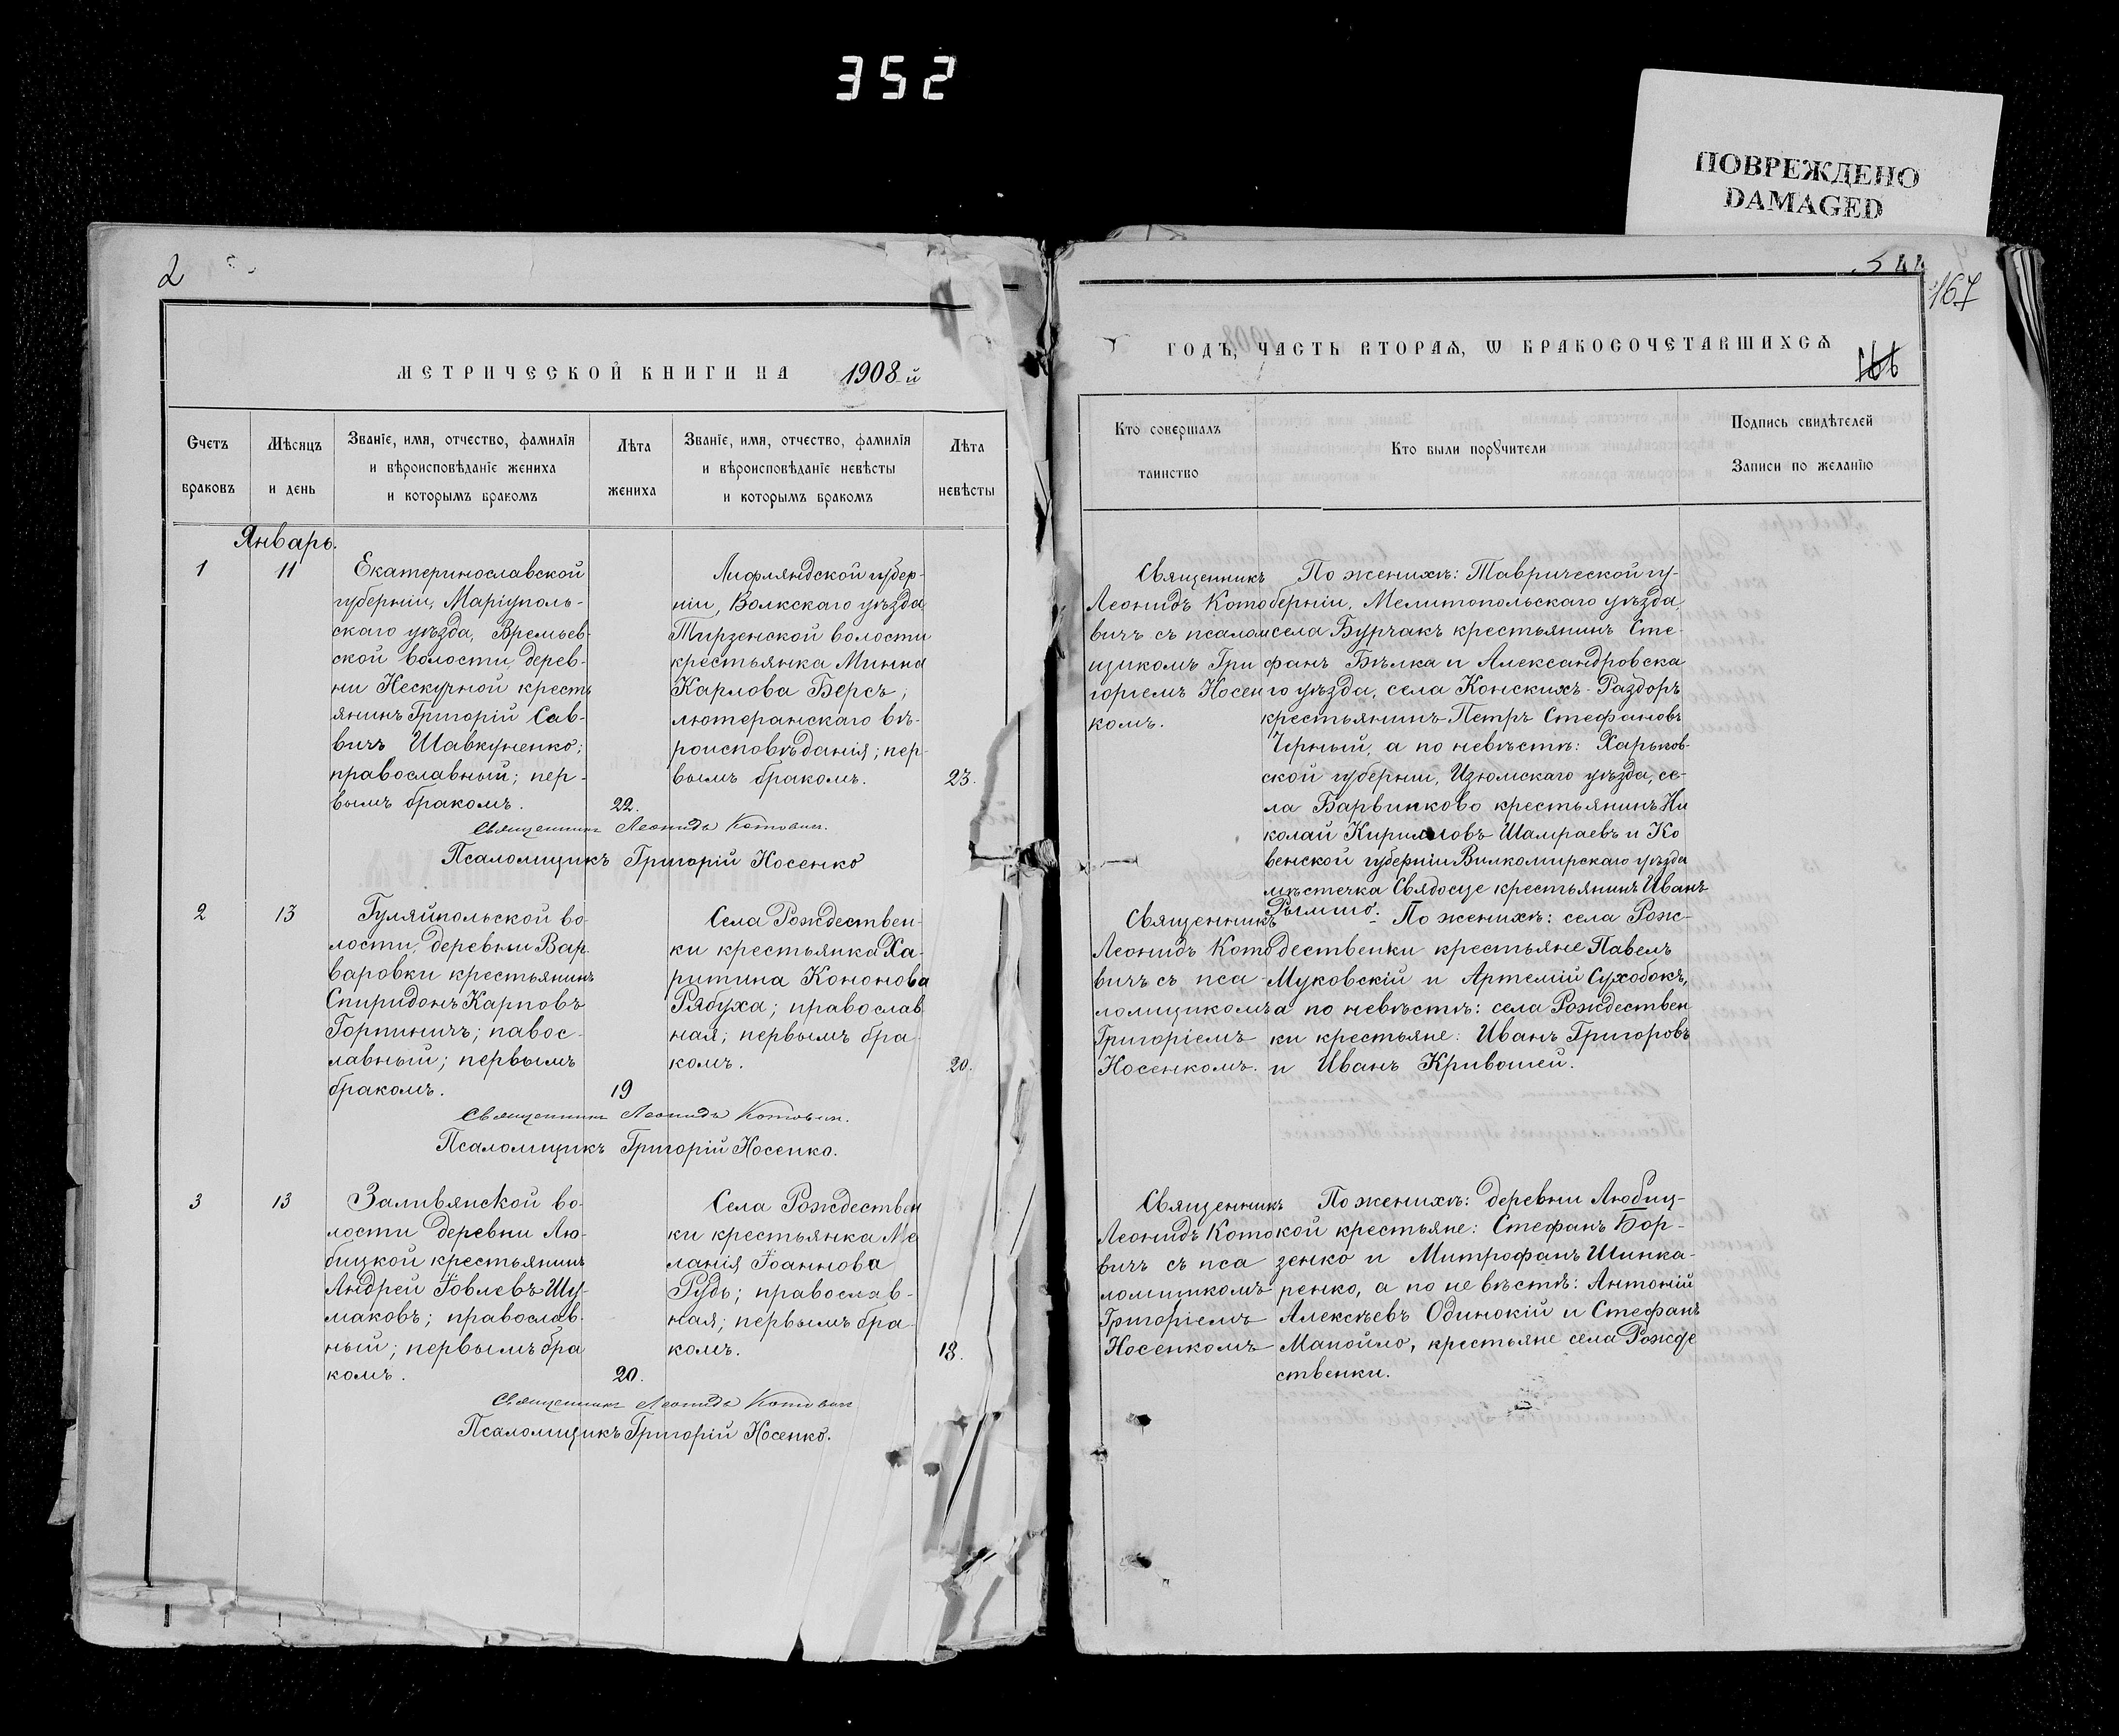 352
ПОВРЕЖДЕНО
DAMAGED
2
МЕТРИЧЕСКОЙ КНИГИ НА 1908-й
Счетъ браковъ
Мѣсяцъ и день
Званіе, имя, отчество, фамилія
и вѣроисповѣданіе жениха
и которымъ бракомъ
Лѣта жениха
Званіе, имя, отчество, фамилія
и вѣроисповѣданіе невѣсты
и которымъ бракомъ
Лѣта невѣсты
Январь.
1
11
Екатеринославской
губерніи, Маріуполь-
скаго уѣзда, Времьев-
ской волости, дерев-
ни Нескучной кресть
янинъ Григорій Сав-
вичъ Шавкуненко;
православный; пер-
вымъ бракомъ.
22.
Лифляндской губер-
ніи, Волкскаго уѣзда
Тирзенской волости
крестьянка Минна
Карлова Берсъ;
лютеранскаго вѣ-
роисповѣданія; пер-
вымъ бракомъ.
23.
Священникъ Леонидъ Котовичъ.
Псаломщикъ Григорій Носенко
2
13
Гуляйпольской во-
лости, деревни Вар-
варовки крестьянинъ
Спиридонъ Карповъ
Горпиничъ; павос-
лавный; первымъ
бракомъ.
19
Села Рождествен-
ки крестьянка Ха-
ритина Кононова
Рябуха; православ
ная; первымъ бра
комъ.
20.
Священникъ Леонидъ Котовичъ.
Псаломщикъ Григорій Носенко.
3
13
Заливянской во-
лости деревни Лю-
бицкой крестьянинъ
Андрей Іовлевъ Шу-
маковъ; православ-
ный; первымъ бра
комъ.
20.
Села Рождествен
ки крестьянка Ме
ланія Іоаннова
Рудь; православ-
ная; первымъ бра-
комъ.
18.
Священникъ Леонидъ Котовичъ
Псаломщикъ Григорій Носенко.
544
167
ГОДЪ, ЧАСТЬ ВТОРАѦ, Ѡ БРАКОСОЧЕТАВШИХСѦ
166
Кто совершалъ
таинство
Кто были порꙋчители
Подпись свидѣтелей
Записи по желанію
Священникъ
Леонидъ Кото
вичъ съ псалом
щикомъ Гри
горіемъ Носен
комъ.
По женихѣ: Таврической гу-
берніи, Мелитопольскаго уѣзда,
села Бурчакъ крестьянинъ Сте-
фанъ Бѣлка и Александровска
го уѣзда, села Конскихъ-Раздоръ
крестьянинъ Петръ Стефановъ
Черный, а по невѣстѣ: Харьков-
ской губерніи, Изюмскаго уѣзда, се-
ла Барвинково крестьянинъ Ни
колай Кирилловъ Шамраевъ и Ко
венской губерніи Вилкомирскаго уѣзда
мѣстечка Свядосце крестьянинъ Иванъ
Рымшо.
Священникъ
Леонидъ Кото
вичъ съ пса-
ломщикомъ
Григоріемъ
Носенкомъ.
По женихѣ: села Рож-
дественки крестьяне Павелъ
Муковскій и Артемій Сухобокъ,
а по невѣстѣ: села Рождествен
ки крестьяне: Иванъ Григоровъ
и Иванъ Кривошей.
Священникъ
Леонидъ Кото
вичъ съ пса
ломщикомъ
Григоріемъ
Носенкомъ
По женихѣ: деревни Любиц-
кой крестьяне: Стефанъ Бор-
зенко и Митрофанъ Шинка-
ренко, а по невѣстѣ: Антоній
Алексѣевъ Одинокій и Стефанъ
Манойло, крестьяне села Рожде
ственки.